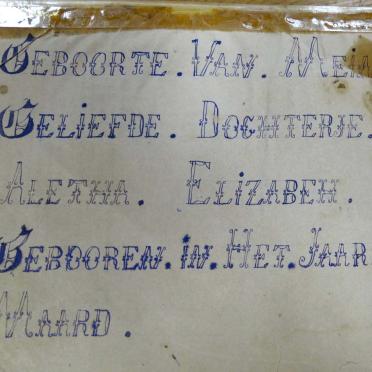 Geboorte. Van. Mein
Geliefde. Dochterje.
Aletha. Elizabeh.
Gebooren. in. Het. Jaar
Maard.